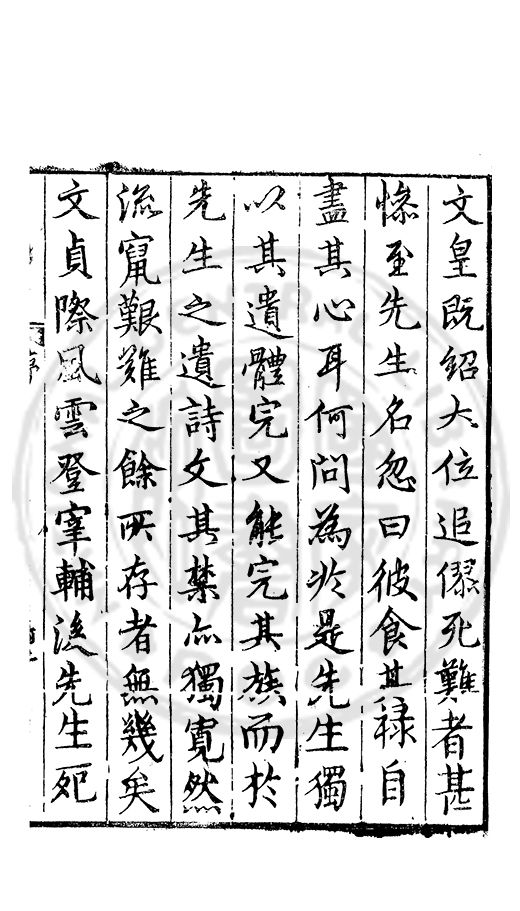 文皇既紹大位追僇死難者甚
慘至先生名忽曰彼食其祿自
盡其心耳何問為於是先生獨
以其遺體完又能完其族而於
先生之遺詩文其禁亦獨寬然
流竄艱難之餘所存者無幾矣
文貞際風雲登宰輔後先生死